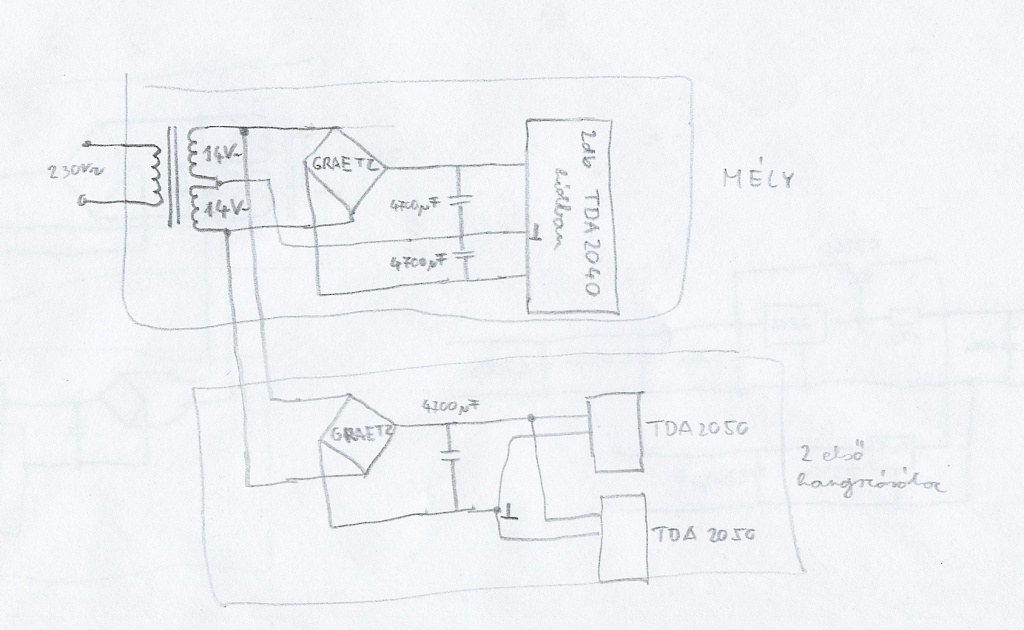 230V~
14V~
14V~
GRAETZ
4700µF
4700µF
2db TDA2040
hídban
MÉLY
GRAETZ
4700µF
TDA2050
TDA2050
2 első
hangszóróhoz